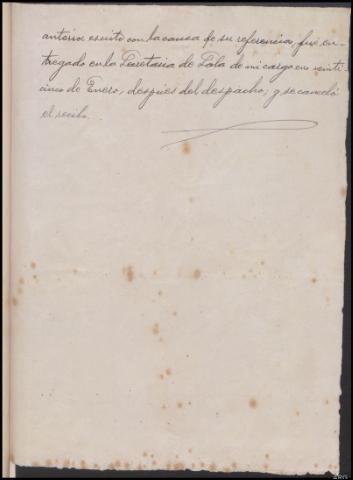 anterior escrito con la causa de su referencia, fué en-
tregado en la Secretaría de Sala de mi cargo en veinti-
cinco de Enero, despues del despacho; y se canceló
el recibo.